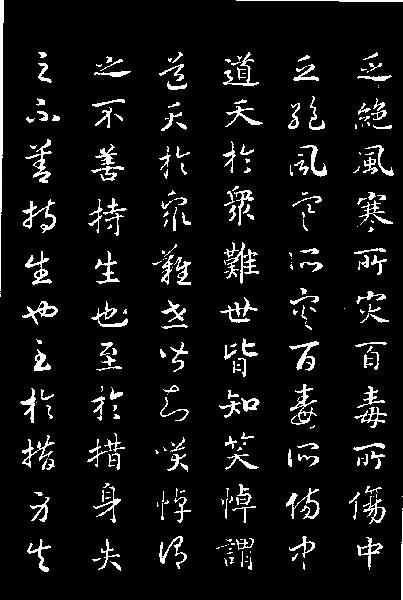 乏絶風寒所災百毒所傷中
乏絶風寒所災百毒所傷中
道夭於衆難世皆知笑悼謂
道夭於衆難世皆知笑悼謂
之不善持生也至於措身失
之不善持生也至於措身失